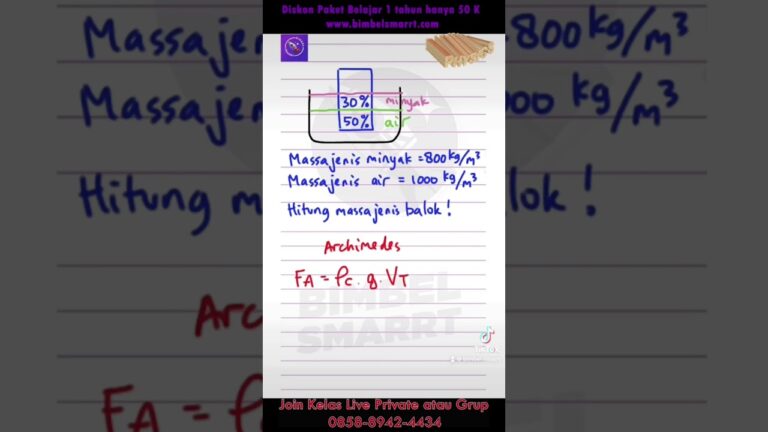 Diskon Paket Belajar 1 tahun hanya 50 K
www.bimbelsmarrt.com
30% minyak
50% air
Massajenis minyak = 800 kg/m³
Massajenis air = 1000 kg/m³
Hitung massajenis balok!
Archimedes
F_A = ρ_c . g . V_T
BIMBEL
SMARRT
Join Kelas Live Private atau Grup
0858-8942-4434